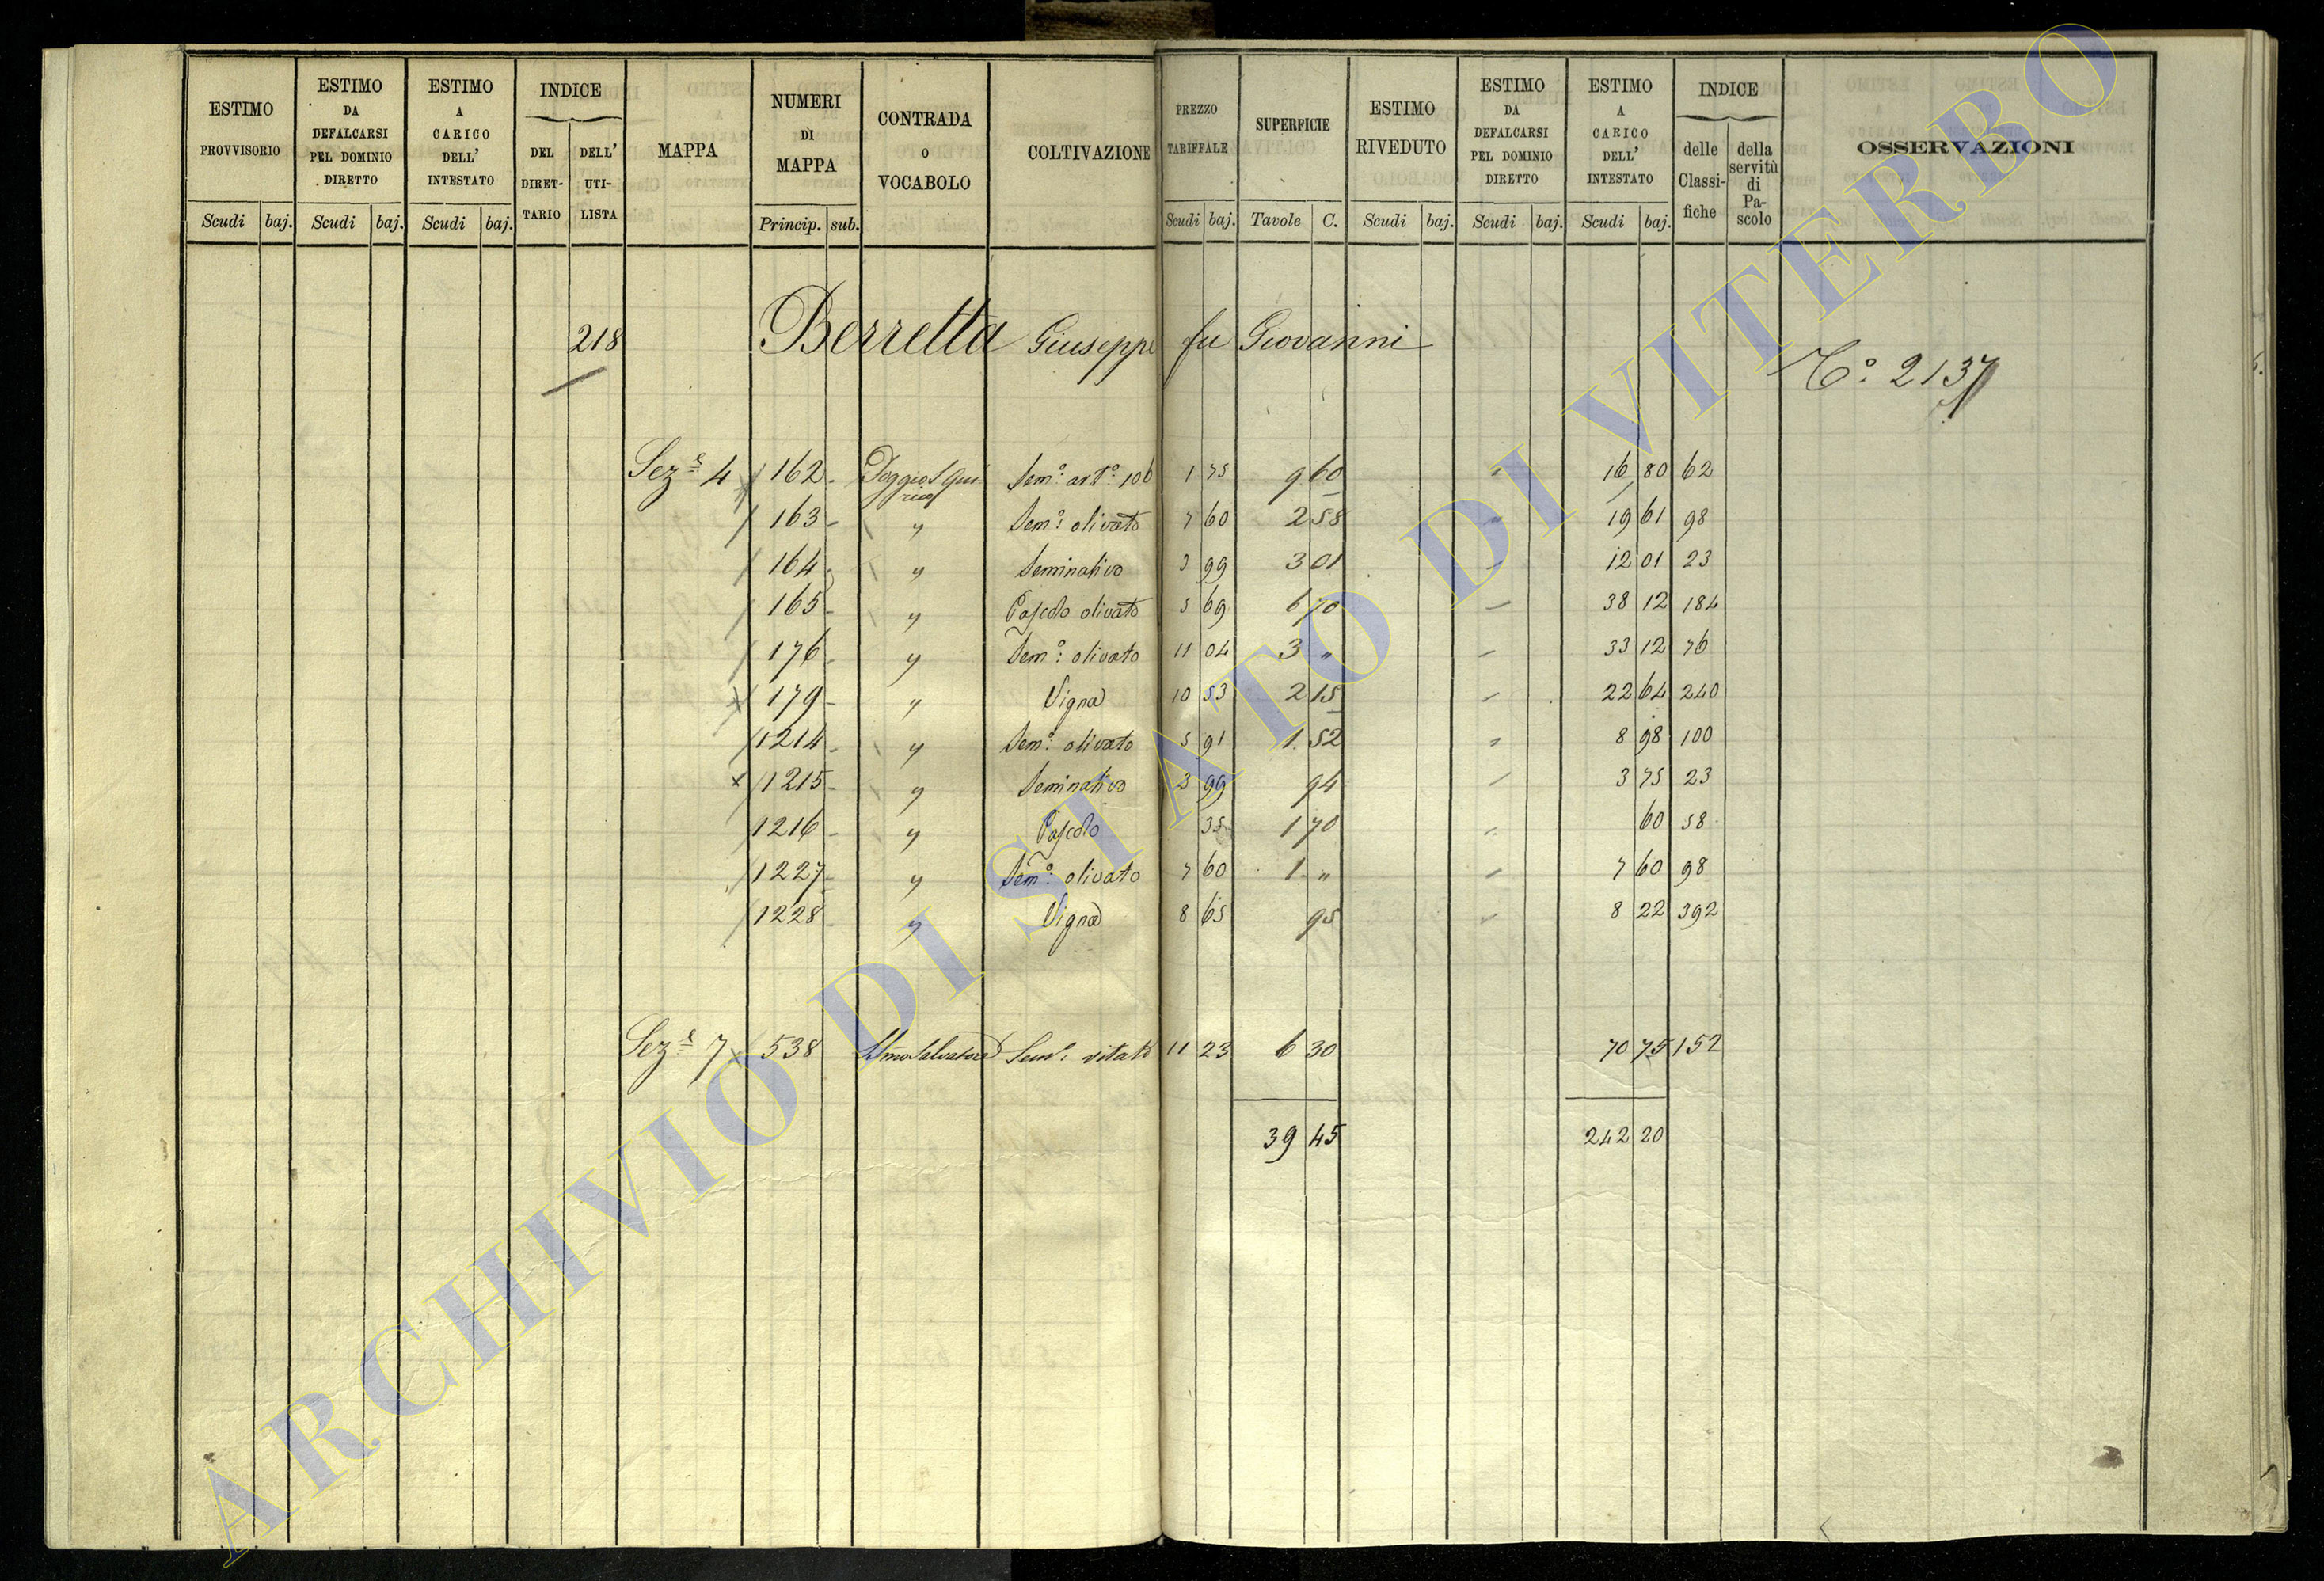 ESTIMO PROVVISORIO Scudi baj.
ESTIMO DA DEFALCARSI PEL DOMINIO DIRETTO Scudi baj.
ESTIMO A CARICO DELL' INTESTATO Scudi baj.
INDICE DEL DIRET-TARIO DELL' UTI-LISTA
MAPPA
NUMERI DI MAPPA Princip. sub.
CONTRADA O VOCABOLO
COLTIVAZIONE
PREZZO TARIFFALE Scudi baj.
SUPERFICIE Tavole C.
ESTIMO RIVEDUTO Scudi baj.
ESTIMO DA DEFALCARSI PEL DOMINIO DIRETTO Scudi baj.
ESTIMO A CARICO DELL' INTESTATO Scudi baj.
INDICE delle Classi-fiche della servitù di Pa-scolo
OSSERVAZIONI
218 Berretta Giuseppe fu Giovanni
Tº: 2137
Sezᵉ 4 162 Poggio S Qui-rico Semº: artº: 106 1 75 9 60 " 16 80 62
163 " Semº: olivato 7 60 2 58 " 19 61 98
164 " Seminativo 3 99 3 01 " 12 01 23
165 " Pascolo olivato 5 69 6 70 " 38 12 184
176 " Semº: olivato 11 04 3 " " 33 12 76
179 " Vigna 10 53 2 15 " 22 64 240
1214 " Semº: olivato 5 91 1 52 " 8 98 100
1215 " Seminativo 3 99 94 " 3 75 23
1216 " Pascolo 35 1 70 " 60 58
1227 " Semº: olivato 7 60 1 " " 7 60 98
1228 " Vigna 8 65 95 " 8 22 392
Sezᵉ 7 538 Smo Salvatore Semº: vitato 11 23 6 30 70 75 152
39 45 242 20
ARCHIVIO DI STATO DI VITERBO